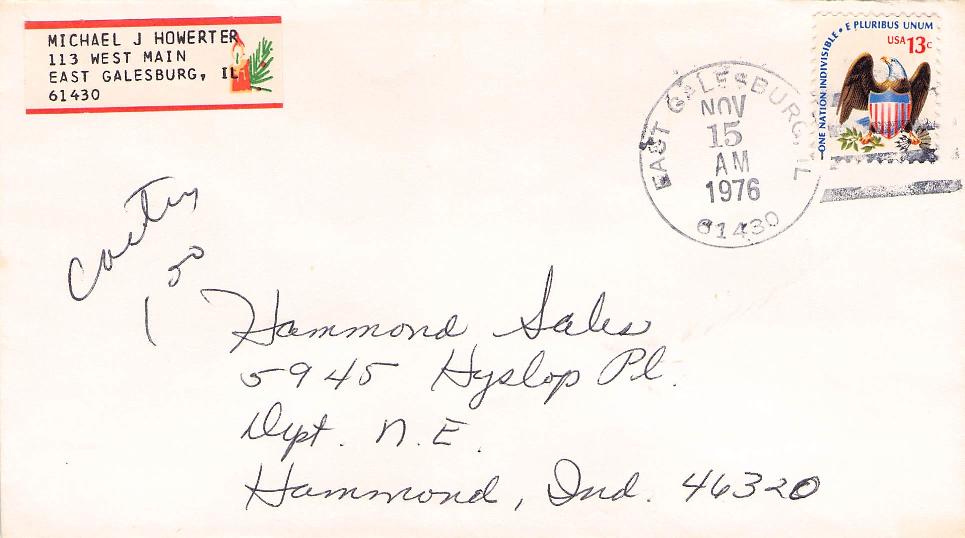 MICHAEL J HOWERTER
113 WEST MAIN
EAST GALESBURG, IL
61430
EAST GALESBURG, IL
NOV
15
AM
1976
61430
ONE NATION INDIVISIBLE • E PLURIBUS UNUM
USA 13c
1 50
Hammond Sales
5945 Hyslop Pl.
Dept. N.E.
Hammond, Ind. 46320